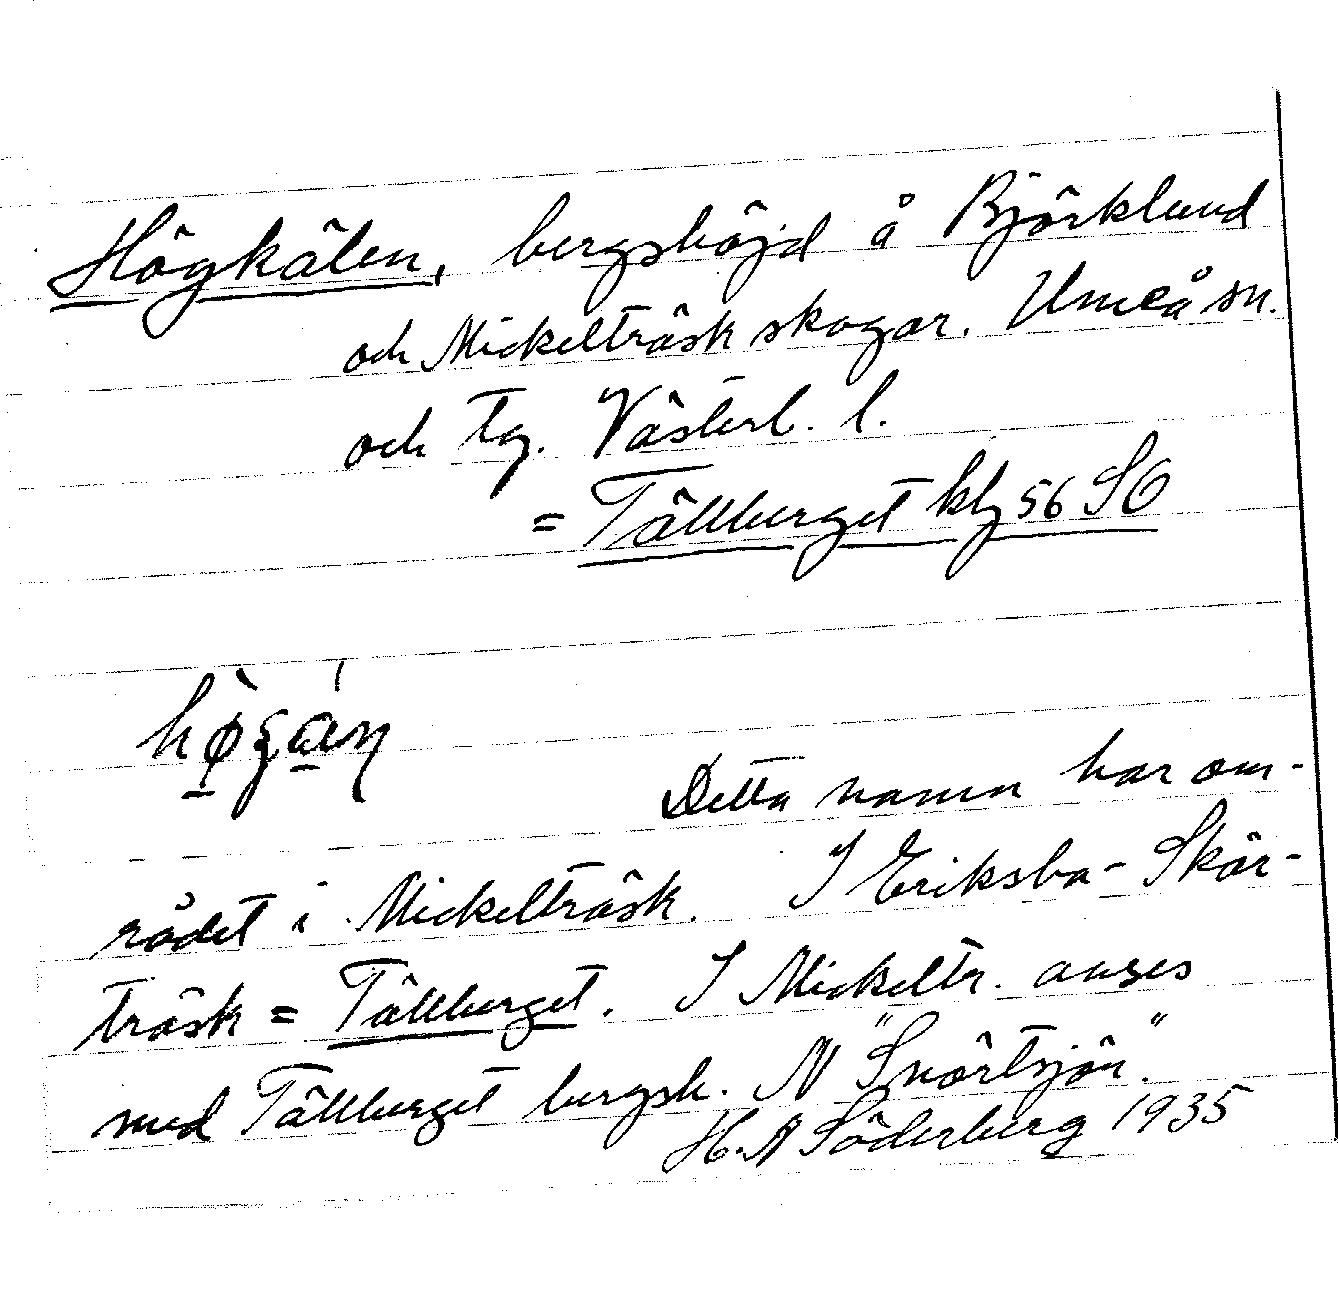 Högkälen, bergshöjd å Björklund
och Mickelträsk skogar. Umeå sn.
och tg. Västerb. l.
= Tällberget kbl 56 SO
Detta namn har om-
rådet i Mickelträsk. I Eriksba- Skär-
träsk = Tällberget. I Mickeltr. anses
med Tällberget bergsh. N "Snörtsjön".
H. A Söderberg 1935